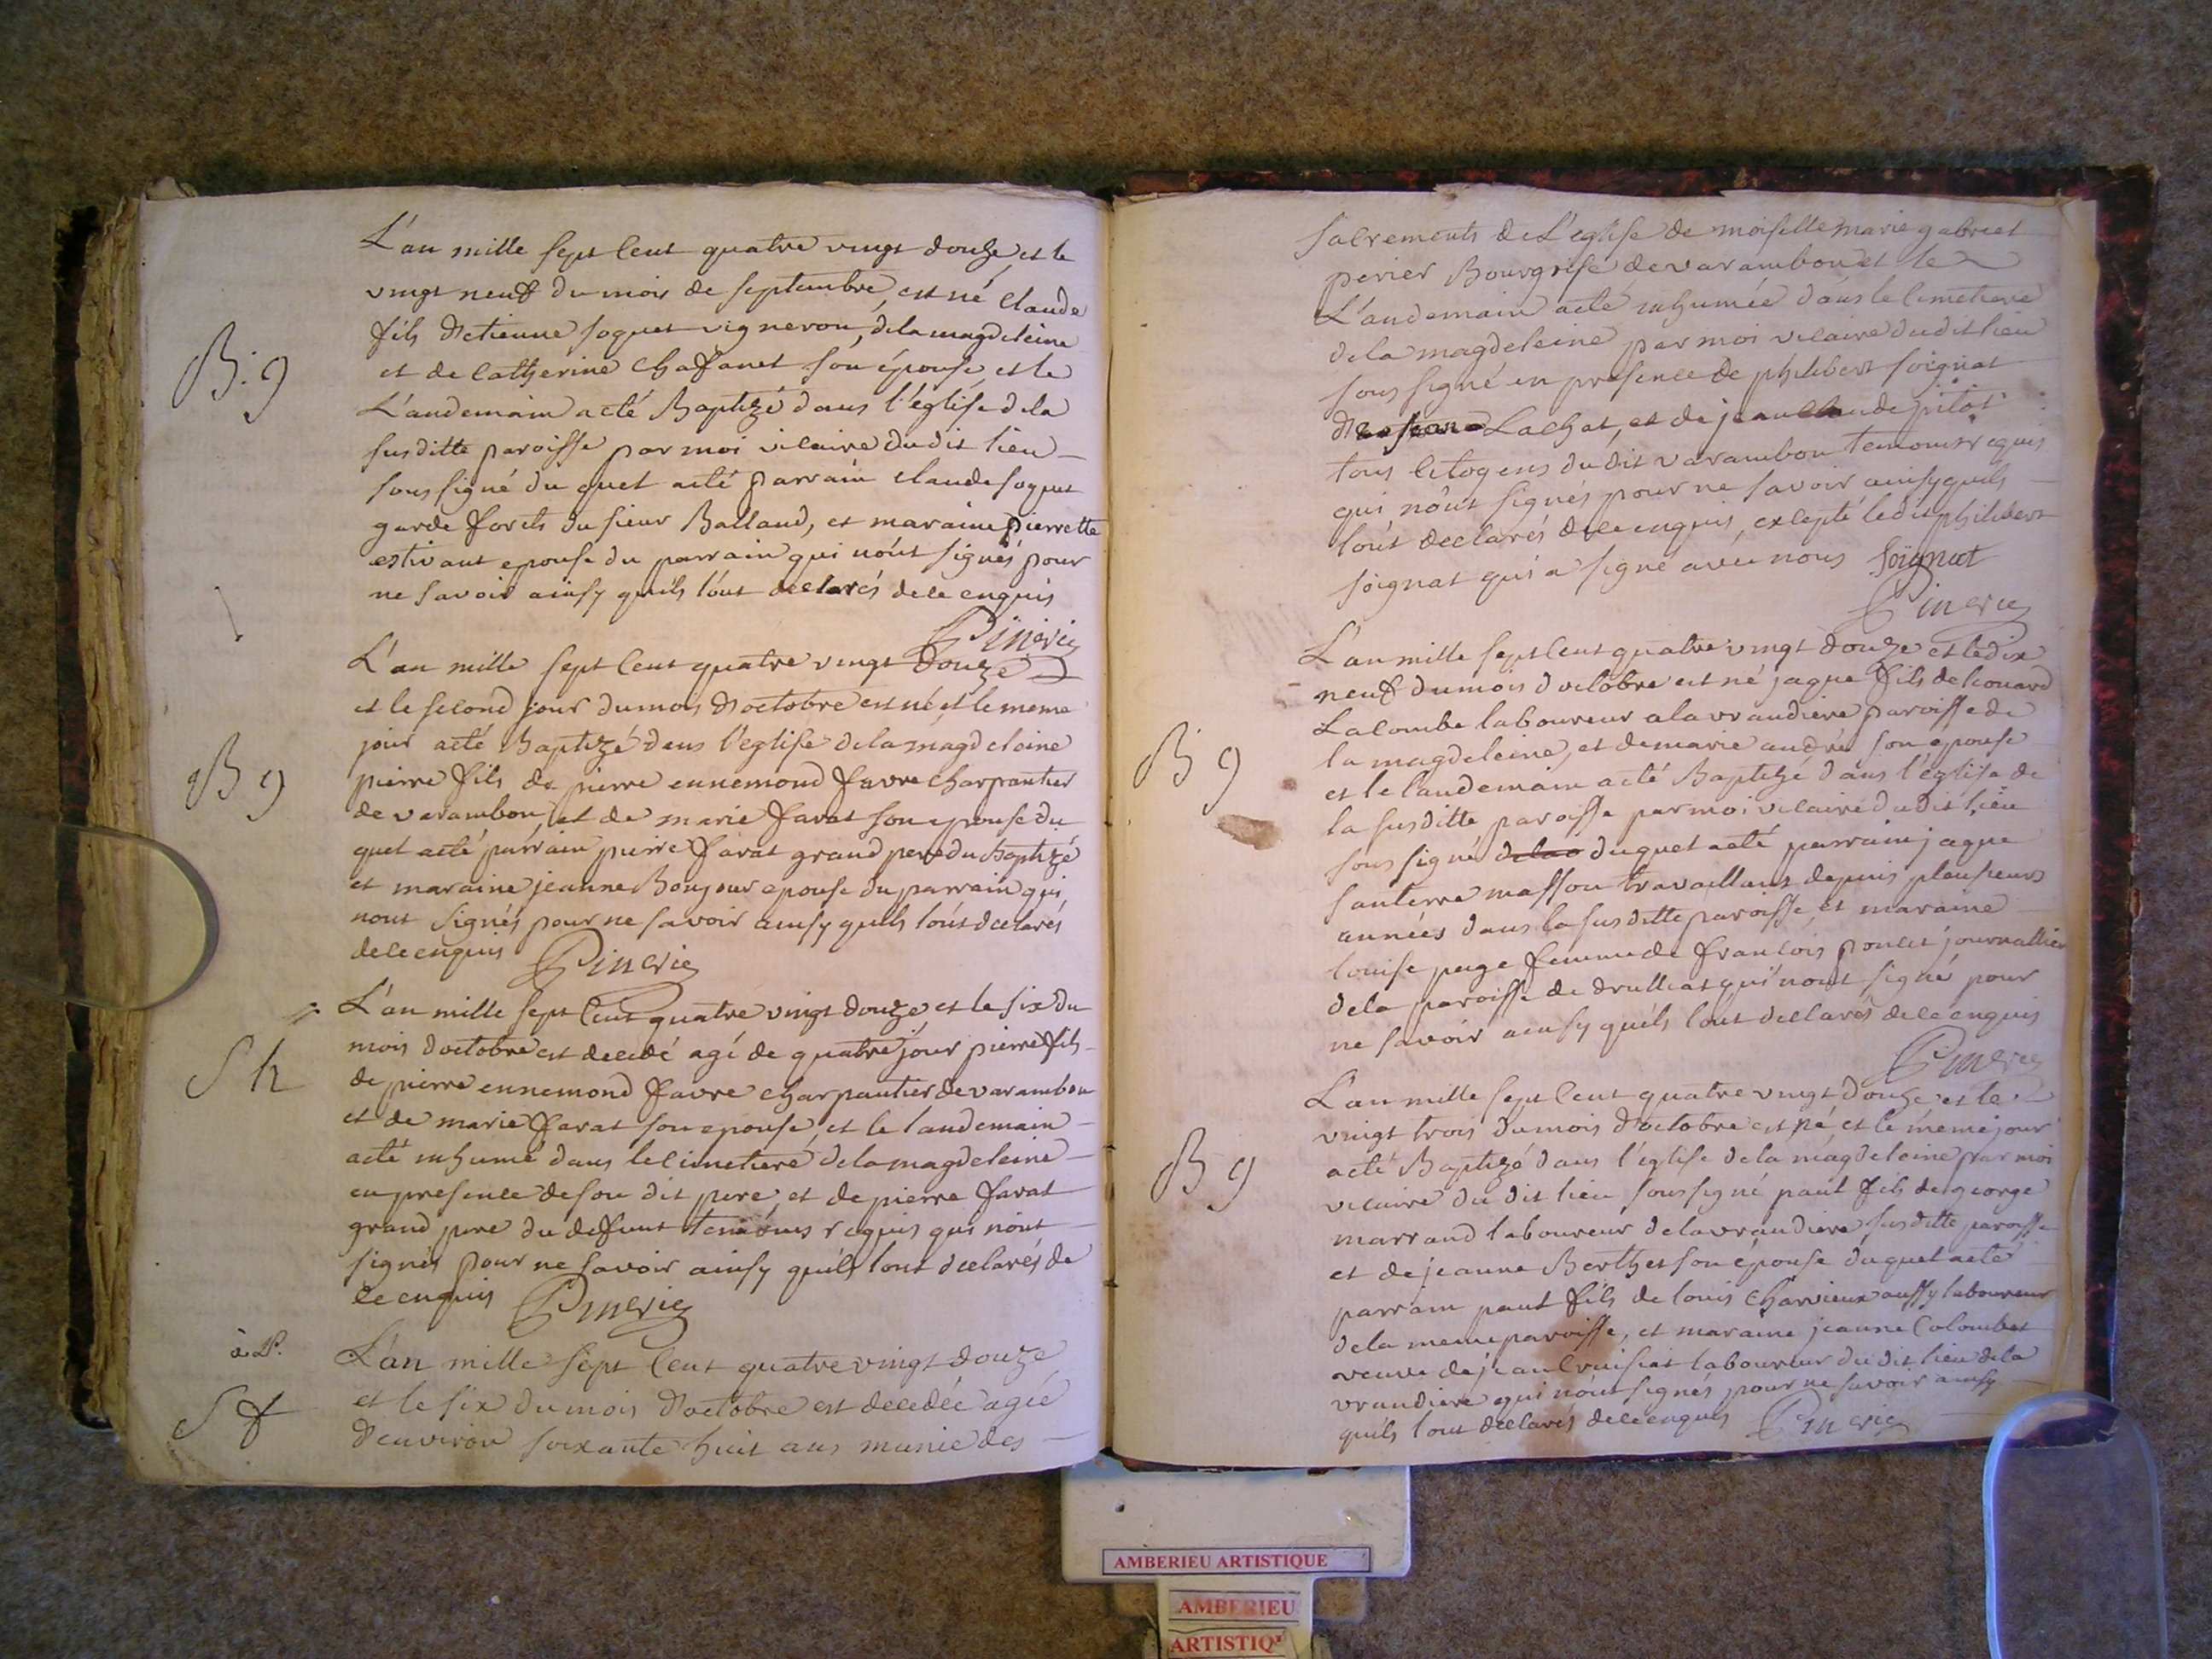 L'an mille sept cent quatre vingt douze, et le
vingt neuf du mois de septembre, est né Claude
fils d'etienne soquet vigneron, dela magdeleine
B. g
et de Catherine Chafanet son épouse, et le
L'andemain acté Baptizé dans l'église dela
susditte paroisse par moi vicaire dudit lieu
sous signé du quel acté parrain claude soquet
garde forêts du sieur Balland, et maraine pierrette
estivant epouse du parrain qui n'ont signés pour
ne savoir ainsy quils l'ont declarés de ce enquis
Pineriez
L'an mille sept cent quatre vingt douze
et le second jour du mois d'octobre est né et le meme
jour acté Baptizé dans l'eglise dela magdeleine
B g
pierre fils de pierre ennemond favre charpantier
de varambon, et de marie favat son epouse du
quel acté parrain pierre favat grand pere du Baptizé
et maraine jeanne Bonjour epouse du parrain qui
nont signés pour ne savoir ainsy quils l'ont declarés
de ce enquis Pineriez
L'an mille sept cent quatre vingt douze et le six du
mois d'octobre est decedé agé de quatre jour pierre fils
S h
de pierre ennemond favre charpantier de varambon
et de marie favat son epouse, et le landemain
acté inhumé dans le cimetiere dela magdeleine
en presence de son dit pere et de pierre favat
grand pere du defunt temoins requis qui n'ont
signés pour ne savoir ainsy quils l'ont declarés de
ce enquis Pineriez
à. P.
L'an mille sept cent quatre vingt douze
et le six du mois d'octobre est decedée agée
S f
d'environ soixante huit ans munie des
sacrements de L'eglise de moiselle marie gabriet
perier Bourgoise de varambon et le
L'andemain acté inhumée dans le cimetiere
dela magdeleine par moi vicaire dudit lieu
sous signé en presence de philibert soignat
Lachat, et de jean claude pitot
tous citoyens du dit varambon temoins requis
qui nônt signés pour ne savoir ainsy quils
l'ont declarés de ce enquis, excepté ledit philibert
soignat qui a signé avec nous Soignat
Pineriez
L'an mille sept cent quatre vingt douze et le dix
neuf du mois d'octobre est né jaque fils de leonard
Lacombe laboureur a la vrandiere paroisse de
B g
la magdeleine, et de marie andré son epouse
et le landemain acté Baptizé dans l'église de
la susditte paroisse par moi vicaire dudit lieu
sous signé duquel acté parrain jaque
santerre masson travaillant depuis plusieurs
années dans la susditte paroisse, et maraine
louise page femme de francois poncet journallier
dela paroisse de druillat qui nont signé pour
ne savoir ainsy quils l'ont declarés de ce enquis
Pineriez
L'an mille sept cent quatre vingt douze et le
vingt trois du mois d'octobre est né et le méme jour
acté Baptizé dans l'église dela magdeleine par moi
B g
vicaire du dit lieu soussigné paul fils de george
marrand laboureur dela vrandiere susditte paroisse
et de jeanne Berthet son épouse duquel acté
parrain paul fils de louis Charvieux aussy laboureur
dela meme paroisse, et maraine jeanne Colombet
veuve de jean laboureur du dit lieu dela
vrandiere qui n'ont signés pour ne savoir ainsy
quils l'ont declarés de ce enquis Pineriez
AMBERIEU ARTISTIQUE
AMBERIEU
ARTISTIQ